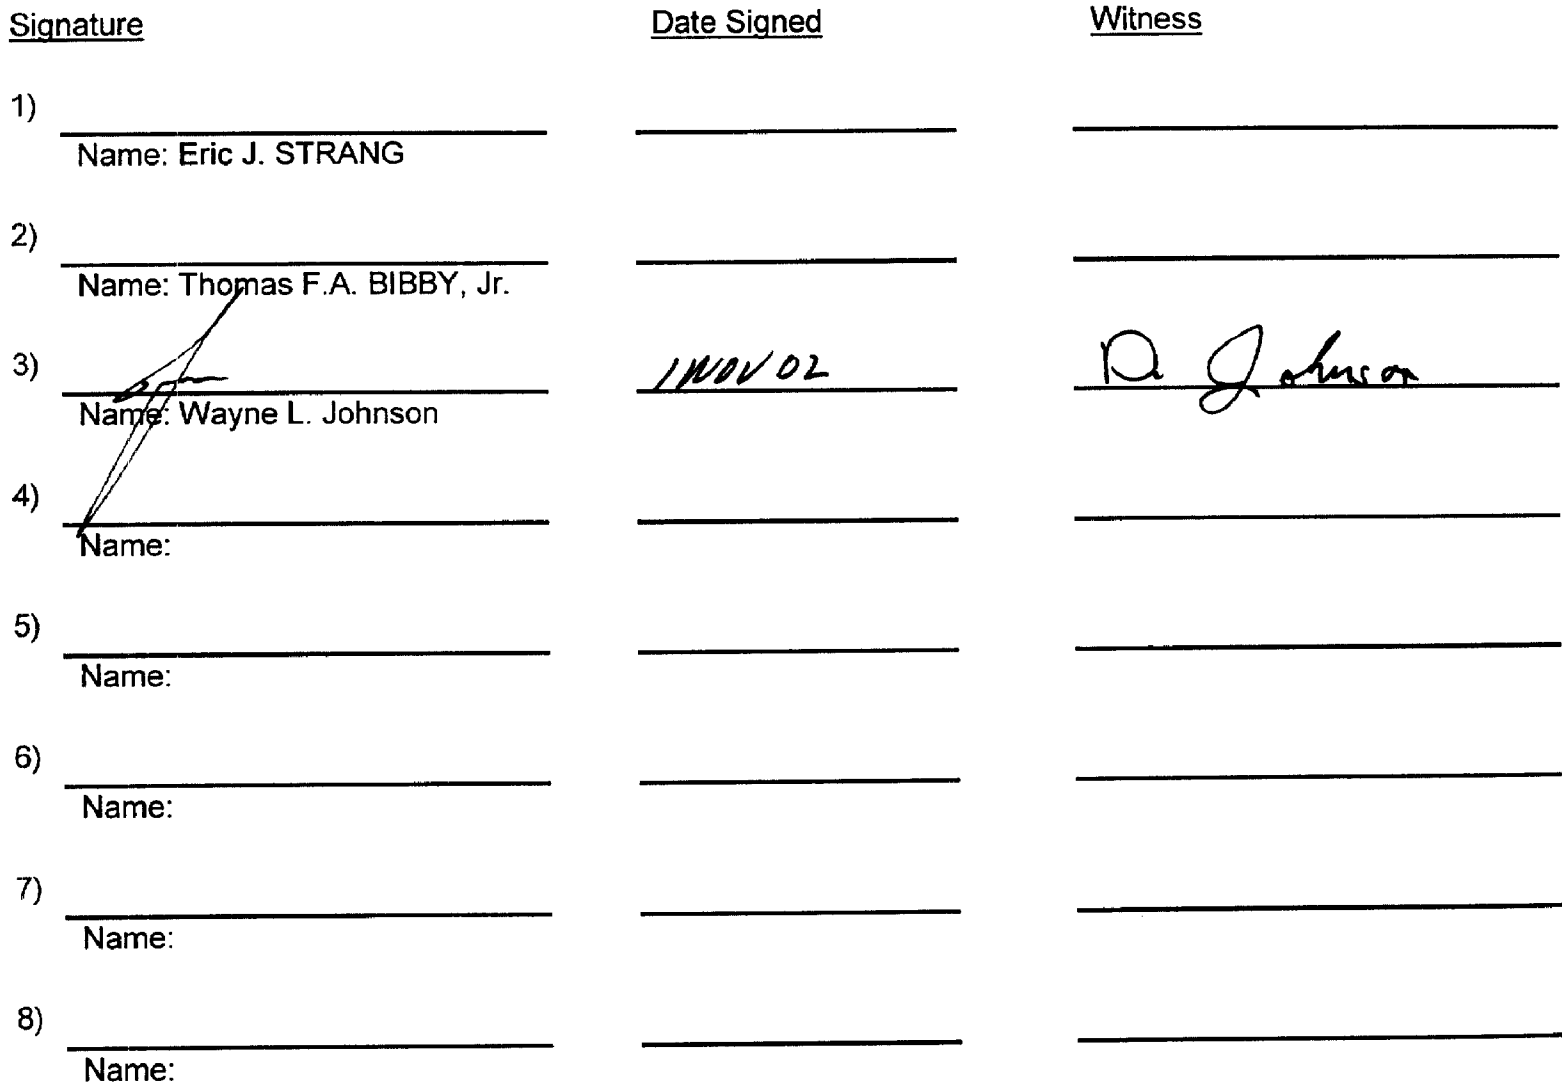 Signature Date Signed Witness
1)
Name: Eric J. STRANG
2)
Name: Thomas F.A. BIBBY, Jr.
3) 1 NOV 02 D. Johnson
Name: Wayne L. Johnson
4)
Name:
5)
Name:
6)
Name:
7)
Name:
8)
Name: